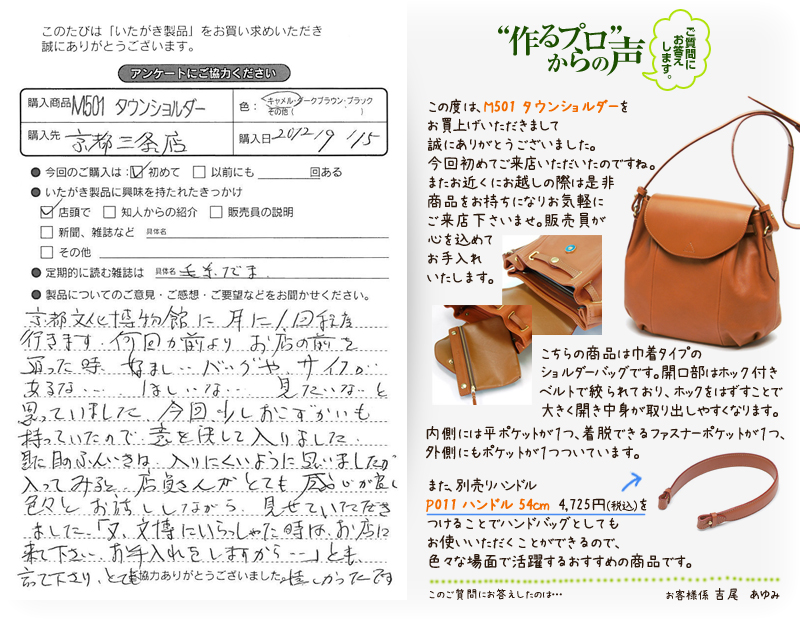 このたびは「いたがき製品」をお買い求めいただき
誠にありがとうございます。
アンケートにご協力ください
購入商品 M501 タウンショルダー
色： キャメル・ダークブラウン・ブラック
その他（　　）
購入先 京都三条店
購入日 2012/9/15
● 今回のご購入は： ☑ 初めて □ 以前にも 回ある
● いたがき製品に興味を持たれたきっかけ
☑ 店頭で □ 知人からの紹介 □ 販売員の説明
□ 新聞、雑誌など 具体名
□ その他
● 定期的に読む雑誌は 具体名 毛糸だま
● 製品についてのご意見・ご感想・ご要望などをお聞かせください。
京都文化博物館に 月に1回程度
行きます。何回か前より お店の前を
通った時、好ましいバッグや、サイフが
あるな… ほしいな… 見たいな…と
思っていました。今回少しおこずかいも
持っていたので 意を決して入りました。
見た目のふんいきは、入りにくいように思いましたが
入ってみると、店員さんがとても 感じが良く
色々と お話ししながら 見せていただき
ました。「又、文博にいらっしゃた時は、お店に
来て下さい。お手入れをしますから…」とも、
言って下さり、とても 嬉しかったです
ご協力ありがとうございました。
“作るプロ”
からの声
ご質問に
お答え
します。
この度は、M501 タウンショルダーを
お買上げいただきまして
誠にありがとうございました。
今回初めてご来店いただいたのですね。
またお近くにお越しの際は是非
商品をお持ちになりお気軽に
ご来店下さいませ。販売員が
心を込めて
お手入れ
いたします。
こちらの商品は巾着タイプの
ショルダーバッグです。開口部はホック付き
ベルトで絞られており、ホックをはずすことで
大きく開き中身が取り出しやすくなります。
内側には平ポケットが1つ、着脱できるファスナーポケットが1つ、
外側にもポケットが1つついています。
また、別売りハンドル
P011 ハンドル 54cm 4,725円(税込)を
つけることでハンドバッグとしても
お使いいただくことができるので、
色々な場面で活躍するおすすめの商品です。
このご質問にお答えしたのは… お客様係 吉尾 あゆみ